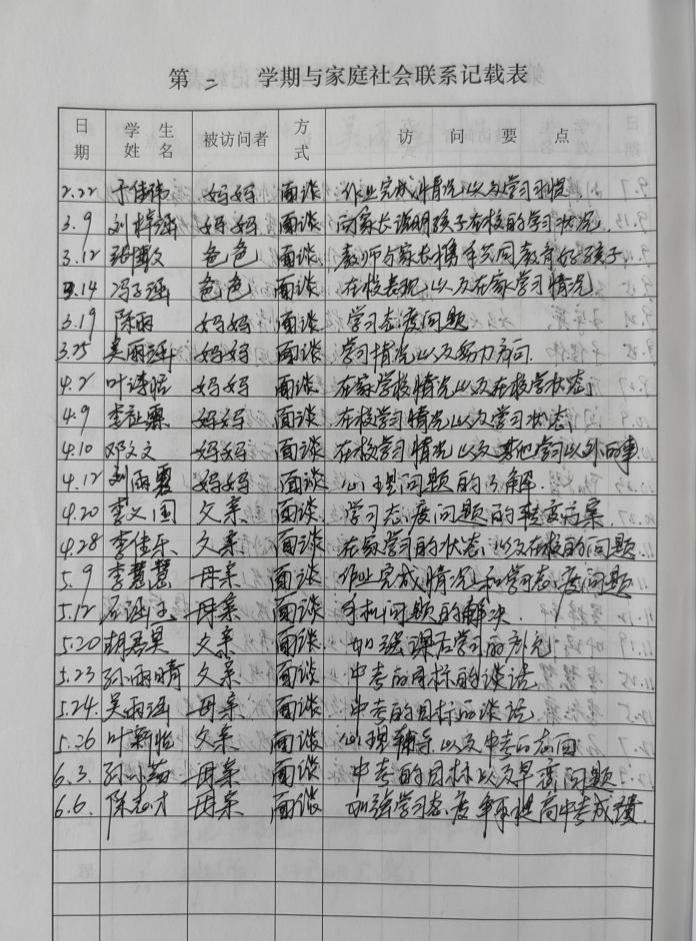 第 二 学期与家庭社会联系记载表
日期 学生姓名 被访问者 方式 访问要点
2.22 于佳伟 妈妈 面谈 作业完成情况以及学习习惯
3.9 刘梓涵 妈妈 面谈 向家长说明孩子在校的学习状况
3.12 张博文 爸爸 面谈 教师与家长携手共同教育好孩子
3.14 冯子涵 爸爸 面谈 在校表现以及在家学习情况
3.19 陈雨 妈妈 面谈 学习态度问题
3.25 吴雨涵 妈妈 面谈 学习情况以及努力方向.
4.2 叶 妈妈 面谈 在家学校情况以及在校学状态
4.9 李 妈妈 面谈 在校学习情况以及学习状态
4.10 邓文文 妈妈 面谈 在校学习情况以及其他学习以外的事
4.12 刘雨 妈妈 面谈 心理问题的了解.
4.20 李文国 父亲 面谈 学习态度问题的转变方案
4.28 李佳乐 父亲 面谈 在家学习的状态以及在校的问题
5.9 李慧慧 母亲 面谈 作业完成情况和学习态度问题
5.12 母亲 面谈 手机问题的解决
5.20 胡 父亲 面谈 加强课后学习的补充
5.23 孙雨晴 父亲 面谈 中考的目标的谈话
5.24. 吴雨涵 母亲 面谈 中考的目标的谈话
5.26 叶 父亲 面谈 心理辅导以及中考的志向
6.3. 孙 母亲 面谈 中考的目标以及早恋问题.
6.6. 陈志才 母亲 面谈 加强学习态度争取提高中考成绩.